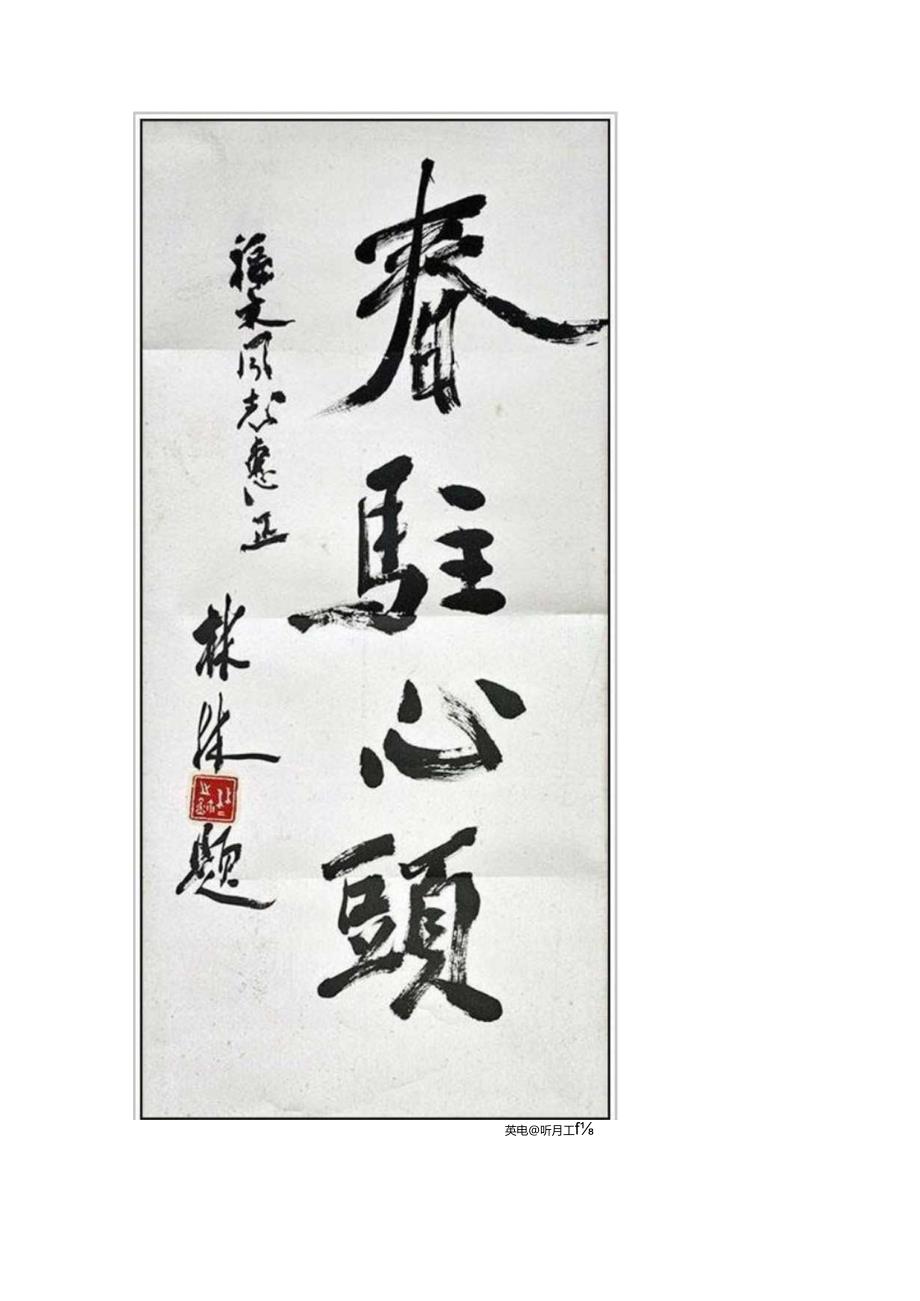 春駐心頭
福文同志惠正
林林
题
英电@听月工f⅛